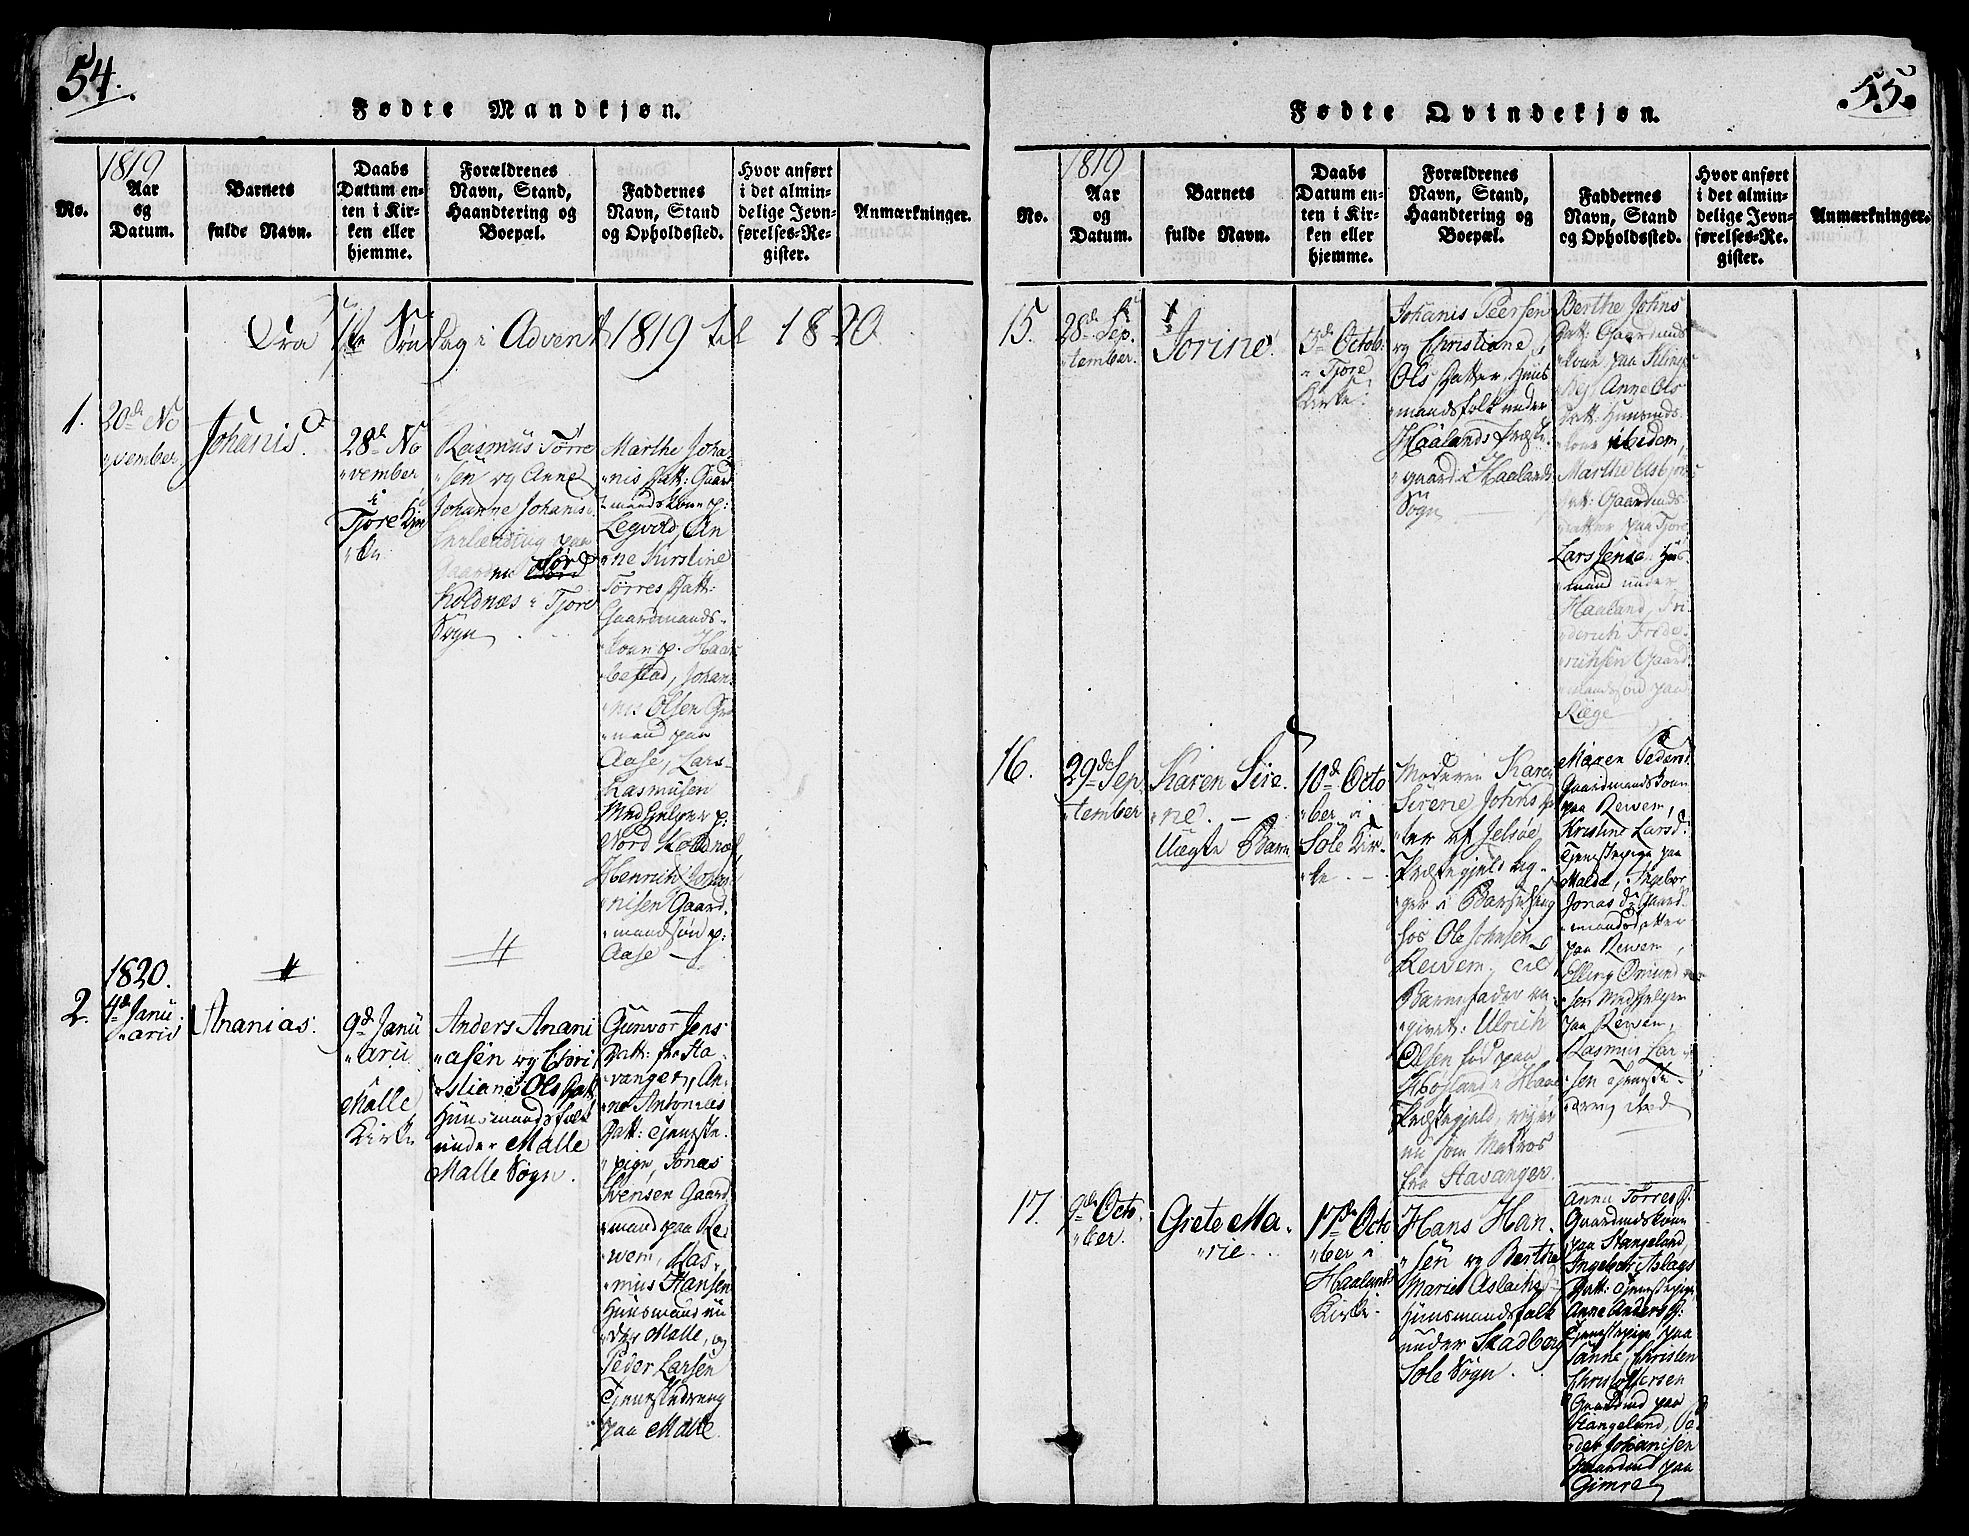 54.
Fødte Mandkjøn.
No.
1819
Aar
og
Datum.
Barnets
fulde Navn.
Daabs
Datum en-
ten i Kir-
ken eller
hjemme.
Forældrenes
Navn, Stand,
Haandtering og
Boepæl.
Faddernes
Navn, Stand
og Opholdssted.
Hvor anført
i det almin-
delige Jevn-
førelses-Re-
gister.
Anmærkninger.
Fra 1ste Søndag i Advent 1819 til 1820.
1.
20de No
vember
Johanis.
28de No
vember
i
Tjore Kir
ke
Rasmus Torre
sen og Anne
Johanne Johanis
paa
Gaarden
Koldnæs i Tjore
Sogn
Marthe Joha
nis Datt: Gaard
mandskone p:
Legvold, An
ne Kirstine
Torres Datt:
Gaardmands
kone p. Haar
bestad, Johan
nis Olsen
mand paa
Aase, Lars
Rasmusen
Medhielper p:
Nord Koldnæs
Henrich Joha
nisen Gaard
mandsøn p:
Aase
1820.
2.
4de Janu
arii
Ananias.
9de Janu
arii
i
Malle
Kirke
Anders Anani
asen og Chri
stiane Ols Datt
Huusmandsfolk
under Malle
Malle Sogn.
Gunvor Jens
Datt: fra Sta
vanger, An
ne Antonies
Datt: Tjeneste
pige, Jonas
Svensen Gaard
mand paa Re
vem, Ras
mus Hansen
Huusmand un
der Malle, og
Peder Larsen
Tjenestedreng
paa Malle.
55.
Fødte Qvindekjøn.
No.
1819
Aar
og
Datum.
Barnets
fulde Navn.
Daabs
Datum en-
ten i Kir-
ken eller
hjemme.
Forældrenes
Navn, Stand,
Haandtering og
Boepæl.
Faddernes
Navn, Stand
og Opholdssted.
Hvor anført
i det almin-
delige Jevn-
førelses-Re-
gister.
Anmærkninger.
15.
28de Sep
tember.
Jorine.
3de Octob:
i Tjore
Kirke.
Johanis Peersen
og Christiane
Ols Datter, Huus
mandsfolk under
Haalands Præste
gaard i Haalands
Sogn
Berthe Johns
Datt: Gaardmds
kone paa
Anne Ols
Datt: Huusmds
kone ibidem,
Marthe Osbjørns
Datt: Gaardmds
datter paa Tjore
Lars Jensen Hus
mand under
Haaland, Fri
derich Fride
richsen Gaard
mandssøn paa
Ræge
16.
29de Sep
tember
Karen Sire
ne.
Uægte Barn
10de Octo
ber i
Sole Kir
ke
Moderen Karen
Sirene Johns Dat
ter af Jelsøe
Præstegjeld lig
ger i Barselseng
hos Ole Johnsen
Reivem, til
Barnefader an
givet: Ulrich
Olsen fød paa
Høiland i Haae
Præstegjeld, reiser
nu som Matros
fra Stavanger.
Maren Peders D.
Gaardmandskone
paa Reivem,
Kristine Larsd:
Tjenestepige paa
Malde, Ingebor
Jonas D: Gaard
mandsdatter
paa Reivem,
Elling Omund
sen Medhielper
paa Reivem,
Rasmus Lar
sen Tjeneste
dreng ibid
17.
9de Octo
ber.
Grete Ma
rie.
17de Octo
ber i
Haalands
Kirke.
Hans Han
sen og Berthe
Marie Aslachs D
Huusmandsfolk
under Skadberg
Sole Sogn.
Anna Torres D:
Gaardmdskone
paa Stangeland,
Ingebor Aslags
Datt: Tjenestepige
Anne Anders D:
Tjenestepige paa
Sønne, Christen
Christofersen
Gaardmd paa
Stangeland, Pe
der Johanisen
Gaardmd paa
Gimre